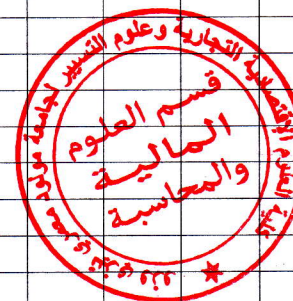 كلية العلوم الإقتصادية التجارية وعلوم التسيير لجامعة مولود معمري تيزي وزو
قسم العلوم
المالية
والمحاسبة